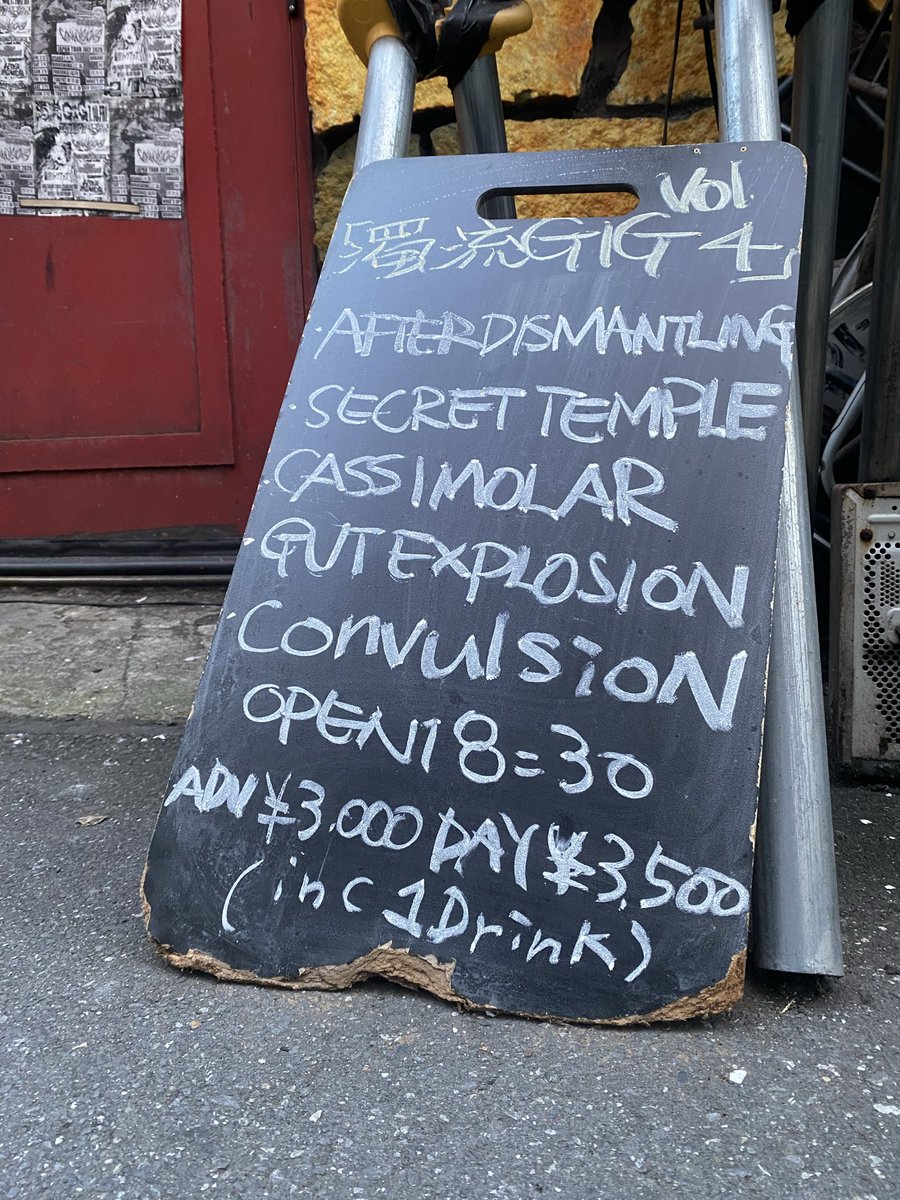 Vol.
「濁流GIG 4」
・AFTERDISMANTLING
・SECRET TEMPLE
・CASSIMOLAR
・GUTEXPLOSION
・Convulsion
OPEN18=30
ADV ¥3.000 DAY ¥3,500
(inc 1Drink)